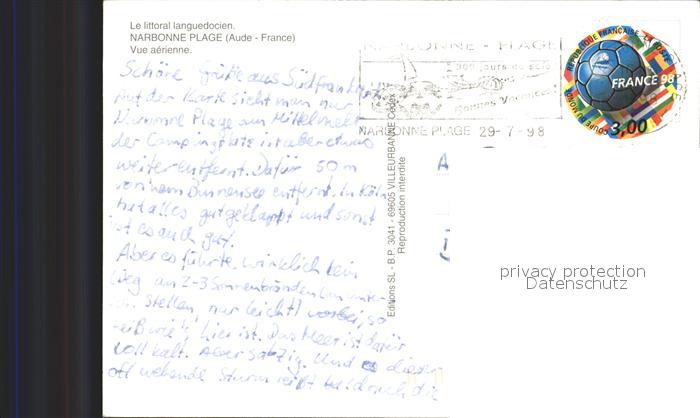 Le littoral languedocien.
NARBONNE PLAGE (Aude - France)
Vue aérienne.
Schöne Grüße aus Südfrankreich
Auf der Karte sieht man nur
Narbonne Plage am Mittelmeer
der Campingplatz ist aber etwas
weiter entfernt. Dafür 50 m
von'nem Binnensee entfernt. In Köln
hat alles gut geklappt und sonst
ist es auch gut.
Aber es führte wirklich kein
Weg an 2-3 Sonnenbränden
stellen, nur leicht) vorbei, so
heiß wie's hier ist. Das Meer ist dafür
voll kalt. Aber salzig. Und dieser
oft wehende Sturm reißt
Editions SL - B.P. 3041 - 69605 VILLEURBANNE Cedex
Reproduction interdite
NARBONNE - PLAGE
300 jours de soleil
Bonnes Vacances
NARBONNE PLAGE 29-7-98
REPUBLIQUE FRANÇAISE LA POSTE
FRANCE 98
COUPE DU MONDE
3,00
privacy protection
Datenschutz